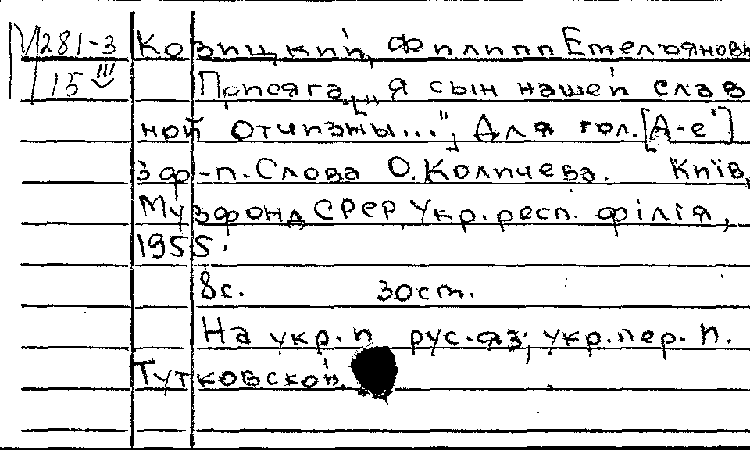 М281-3 Козицкий, Филипп Емельянович
15 III Присяга. ["Я сын нашей слав
ной отчизны..."], Для гол. [A-e']
з ф-п. Слова О. Колычева. Київ,
Музфонд СРСР, Укр. респ. філія,
1955.
8с. 30ст.
На укр. и рус.яз; укр.пер. П.
Тутковской.